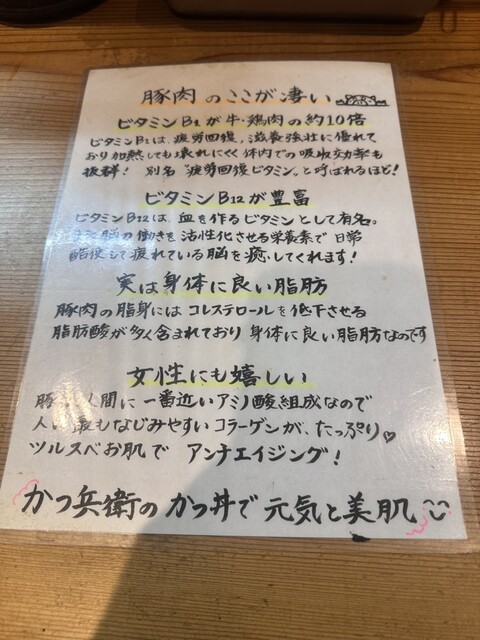 豚肉のここが凄い
ビタミンB1が牛・鶏肉の約10倍
ビタミンB1は、疲労回復、滋養強壮に優れて
おり加熱しても壊れにくく体内での吸収効率も
抜群! 別名"疲労回復ビタミン"と呼ばれるほど!
ビタミンB12が豊富
ビタミンB12は、血を作るビタミンとして有名。
また脳の働きを活性化させる栄養素で日常
酷使して疲れている脳を癒してくれます!
実は身体に良い脂肪
豚肉の脂身にはコレステロールを低下させる
脂肪酸が多く含まれており身体に良い脂肪なのです
女性にも嬉しい
豚 人間に一番近いアミノ酸組成なので
人 最もなじみやすいコラーゲンが、たっぷり♡
ツルスベお肌で アンチエイジング!
かつ兵衛のかつ丼で元気と美肌